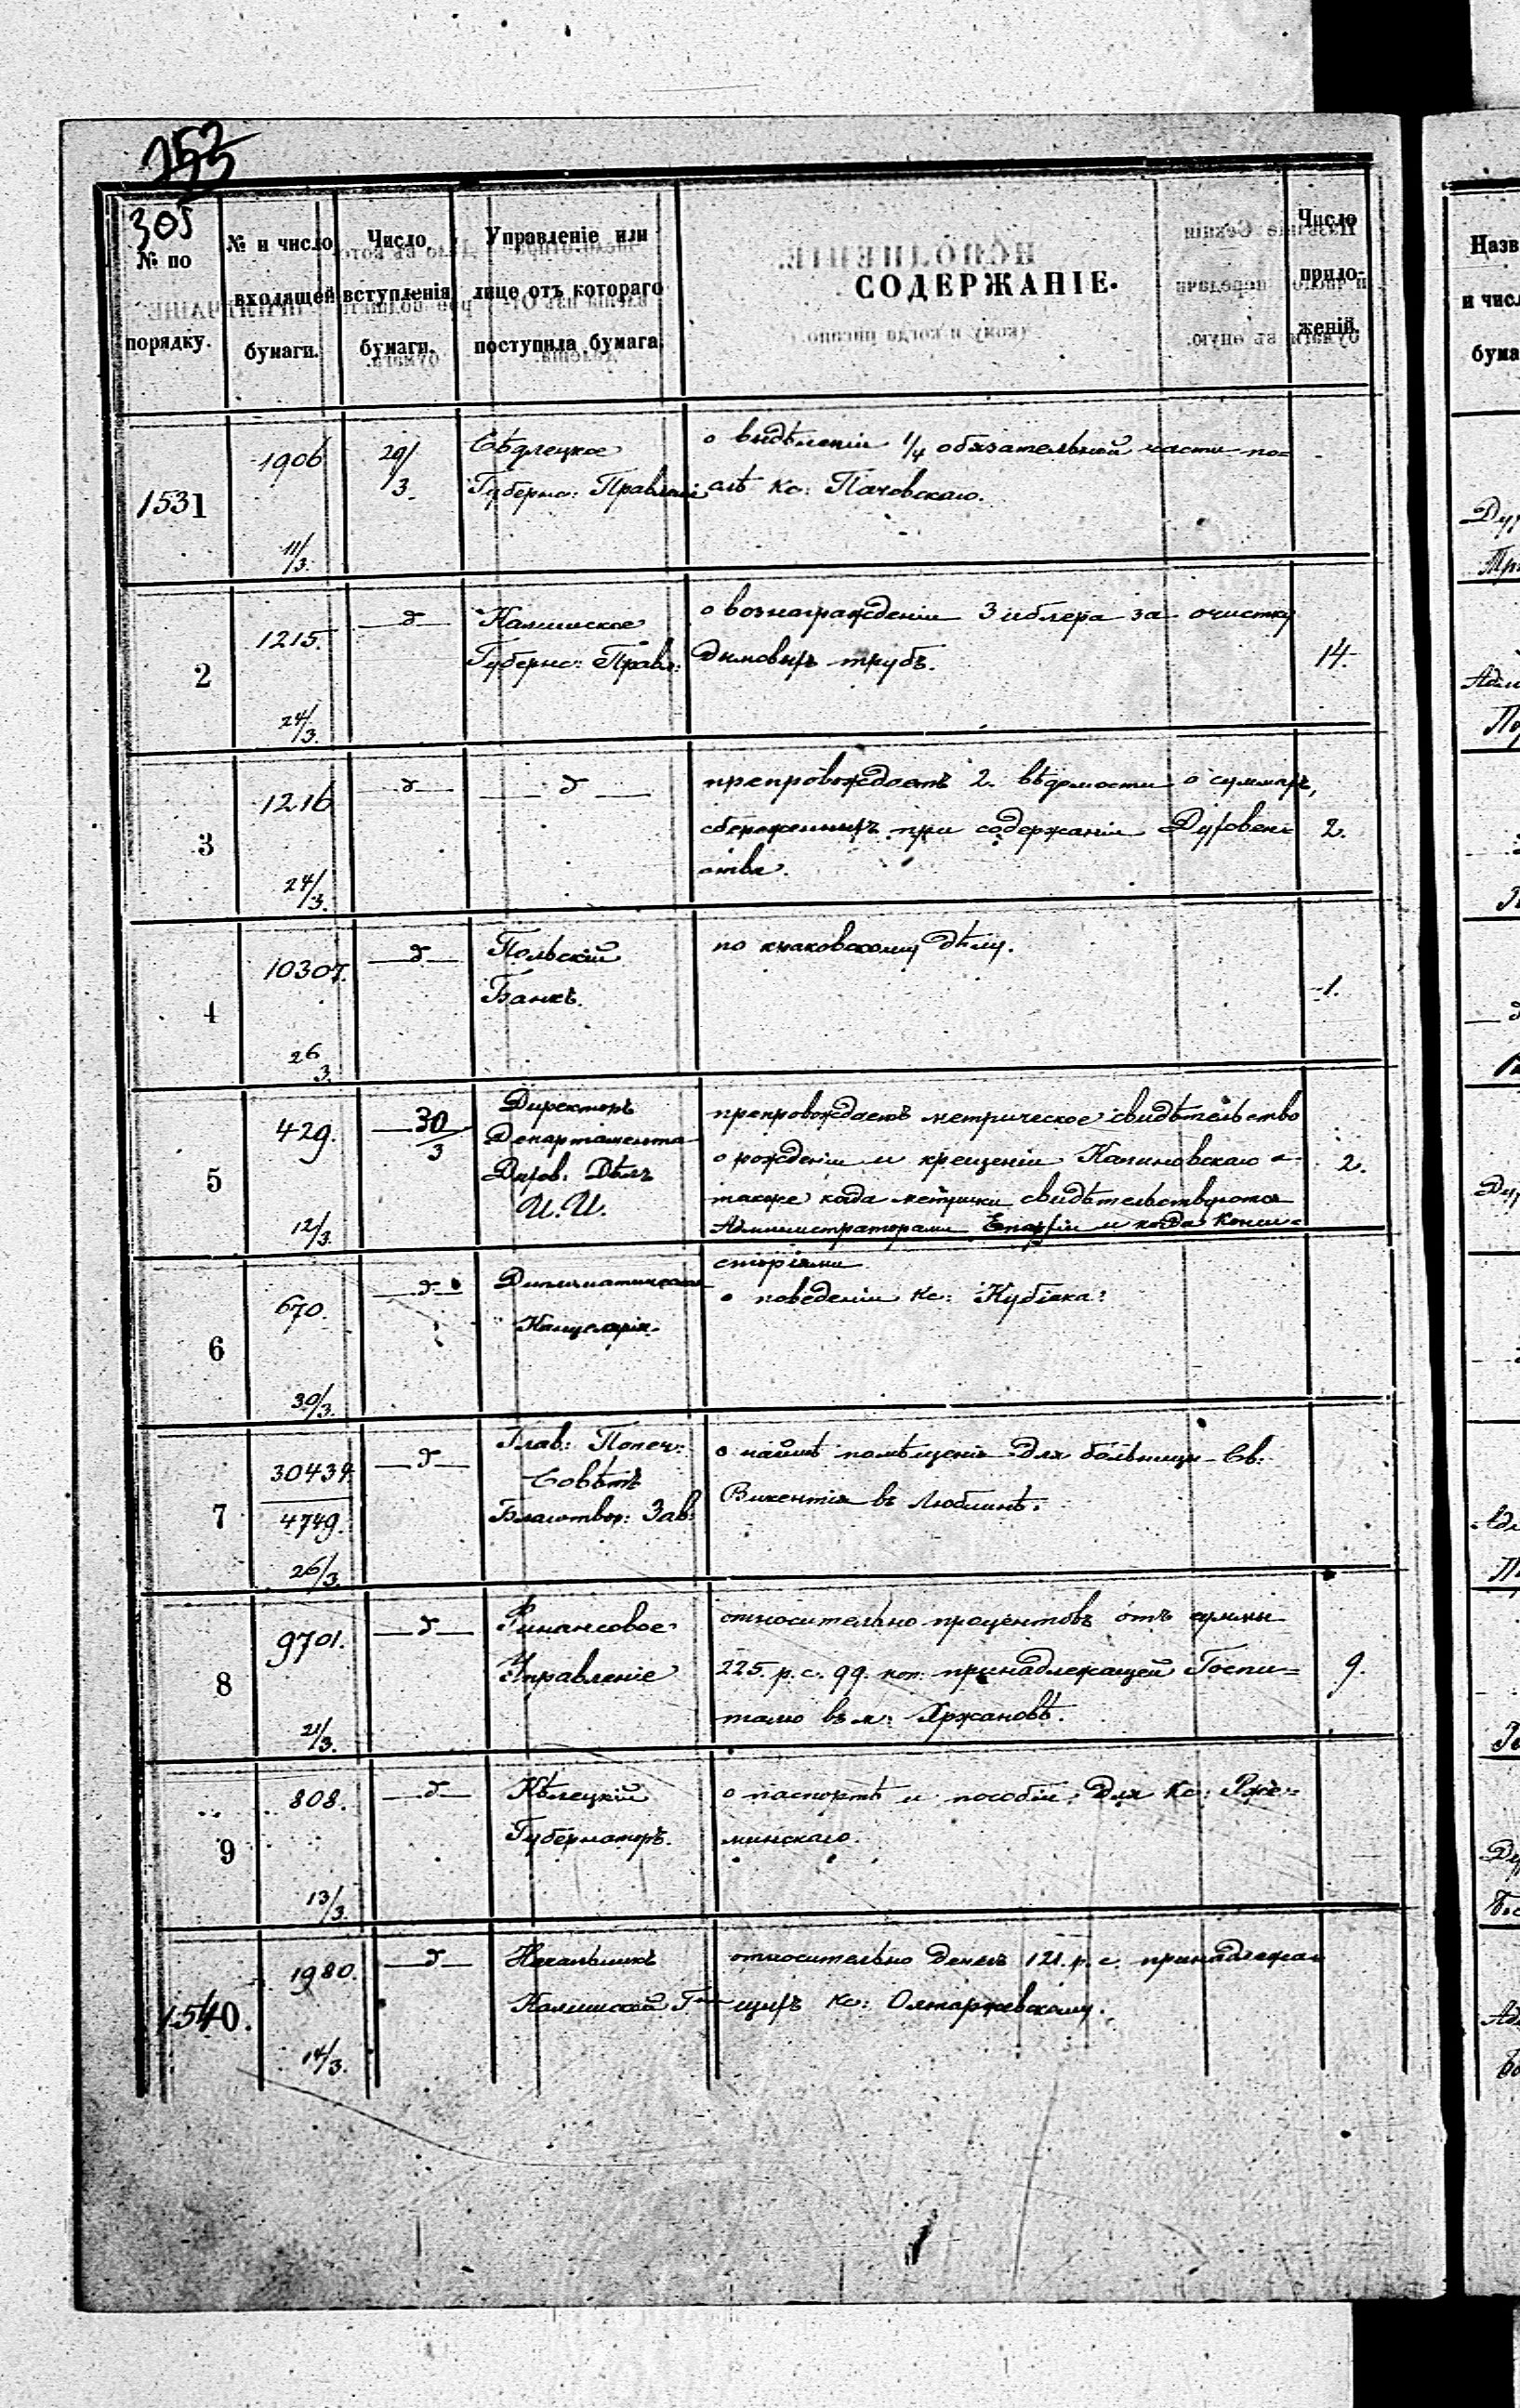 305
№ по порядку.
№ и число входящей бумаги.
Число вступленія бумаги.
Управленіе или лице отъ котораго поступила бумага.
СОДЕРЖАНІЕ.
Число приложеній.
1531
1906
11/3.
29/3.
Сѣдлецкое
Губернс: Правленіе
о выдѣленіи 1/4 обязательной части по=
слѣ Кс: Пачовскаго.
2
1215.
24/3.
д
Калишское
Губернс: Правл:
о вознагражденіи Зиблера за очистку
дымовыхъ трубъ.
14.
3
1216
24/3.
д
д
препровождаетъ 2. вѣдомости о суммахъ,
сбереженныхъ при содержаніи Духовен=
ства.
2.
4
10307.
26/3.
д
Польскій
Банкъ.
по дѣлу.
1.
5
429.
12/3.
30/3
Директоръ
Департамента
Духов. Дѣлъ
И. И.
препровождаетъ метрическое свидѣтельство
о рожденіи и крещеніи Калиновскаго а
также когда метрики свидѣтельствуются
Администраторами Епархіи и когда Конси=
сторіями
2.
6
670.
30/3.
д
Дипломатическая
Канцелярія.
о поведеніи Кс: Кубіака:
7
30434
4749.
26/3.
д
Глав: Попеч:
Совѣтъ
Благотвор: Зав:
о наймѣ помѣщенія для больницы Св.
Викентія въ Люблинѣ.
8
9701.
21/3.
д
Финансовое
Управленіе
относительно процентовъ отъ суммы
225. р. с. 99. коп. принадлежащей Госпи=
талю въ м: Хржановѣ.
9.
9
808.
13/3.
д
Кѣлецкій
Губернаторъ.
о паспортѣ и пособіи для Кс: Рже=
минскаго.
1540.
1980.
14/3.
д
Начальникъ
Калишской Г
относительно денегъ 121. р. с. принадлежа=
щихъ Кс: